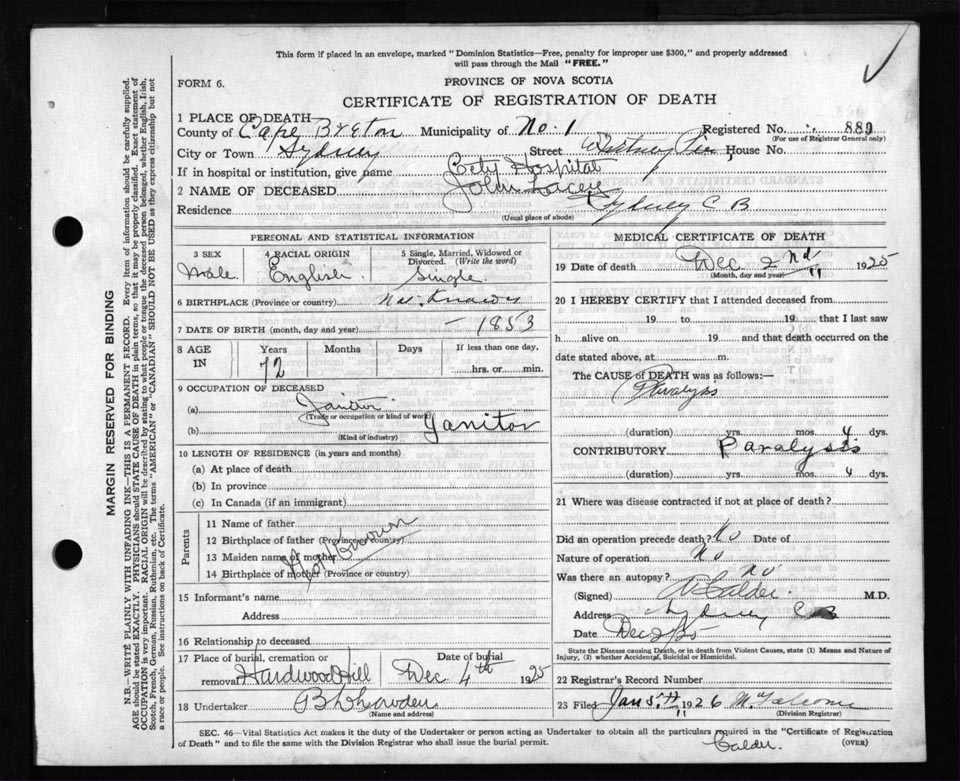 This form if placed in an envelope, marked "Dominion Statistics—Free, penalty for improper use $300," and properly addressed
will pass through the Mail "FREE."
FORM 6.
PROVINCE OF NOVA SCOTIA
CERTIFICATE OF REGISTRATION OF DEATH
1 PLACE OF DEATH
County of Cape Breton Municipality of No. 1 Registered No. 880
(For use of Registrar General only)
City or Town Sydney Street Whitney Pier House No.
If in hospital or institution, give name City Hospital
2 NAME OF DECEASED John Lacey
Residence Sydney C B
(Usual place of abode)
PERSONAL AND STATISTICAL INFORMATION
3 SEX 4 RACIAL ORIGIN 5 Single, Married, Widowed or Divorced. (Write the word)
Male English Single
6 BIRTHPLACE (Province or country) Not Known
7 DATE OF BIRTH (month, day and year) — 1853
8 AGE IN Years Months Days If less than one day,
72 hrs. or min.
9 OCCUPATION OF DECEASED
(a) Janitor
(Trade or occupation or kind of work)
(b) Janitor
(Kind of industry)
10 LENGTH OF RESIDENCE (in years and months)
(a) At place of death
(b) In province
(c) In Canada (if an immigrant)
Parents
11 Name of father
12 Birthplace of father (Province or country)
13 Maiden name of mother
14 Birthplace of mother (Province or country)
Not Known
15 Informant's name
Address
16 Relationship to deceased
17 Place of burial, cremation or removal Date of burial
Hardwood Hill Dec 4th 1925
18 Undertaker
(Name and address)
MEDICAL CERTIFICATE OF DEATH
19 Date of death Dec 2nd 1925
(Month, day and year)
20 I HEREBY CERTIFY that I attended deceased from
19 to 19 that I last saw
h alive on 19 and that death occurred on the
date stated above, at m.
The CAUSE of DEATH was as follows:—
Paralysis
(duration) yrs. mos. 4 dys.
CONTRIBUTORY Paralysis
(duration) yrs. mos. 4 dys.
21 Where was disease contracted if not at place of death?
Did an operation precede death? No Date of
Nature of operation No
Was there an autopsy? no
(Signed) Calder M.D.
Address Sydney C B
Date Dec
State the Disease causing Death, or in death from Violent Causes, state (1) Means and Nature of
Injury, (2) whether Accidental, Suicidal or Homicidal.
22 Registrar's Record Number
23 Filed Jan 5th 1926
(Division Registrar)
SEC. 46—Vital Statistics Act makes it the duty of the Undertaker or person acting as Undertaker to obtain all the particulars required in the "Certificate of Registration
of Death" and to file the same with the Division Registrar who shall issue the burial permit. (OVER)
Calder
MARGIN RESERVED FOR BINDING
N.B.—WRITE PLAINLY WITH UNFADING INK—THIS IS A PERMANENT RECORD. Every item of information should be carefully supplied.
AGE should be stated EXACTLY. PHYSICIANS should STATE CAUSE OF DEATH in plain terms, so that it may be properly classified. Exact statement of
OCCUPATION is very important. RACIAL ORIGIN will be described by stating to what people or tongue the deceased person belonged, whether English, Irish,
Scotch, French, German, Russian, Ruthenian, etc. The terms "AMERICAN" or "CANADIAN" SHOULD NOT BE USED as they express citizenship but not
a race or people. See instructions on back of Certificate.